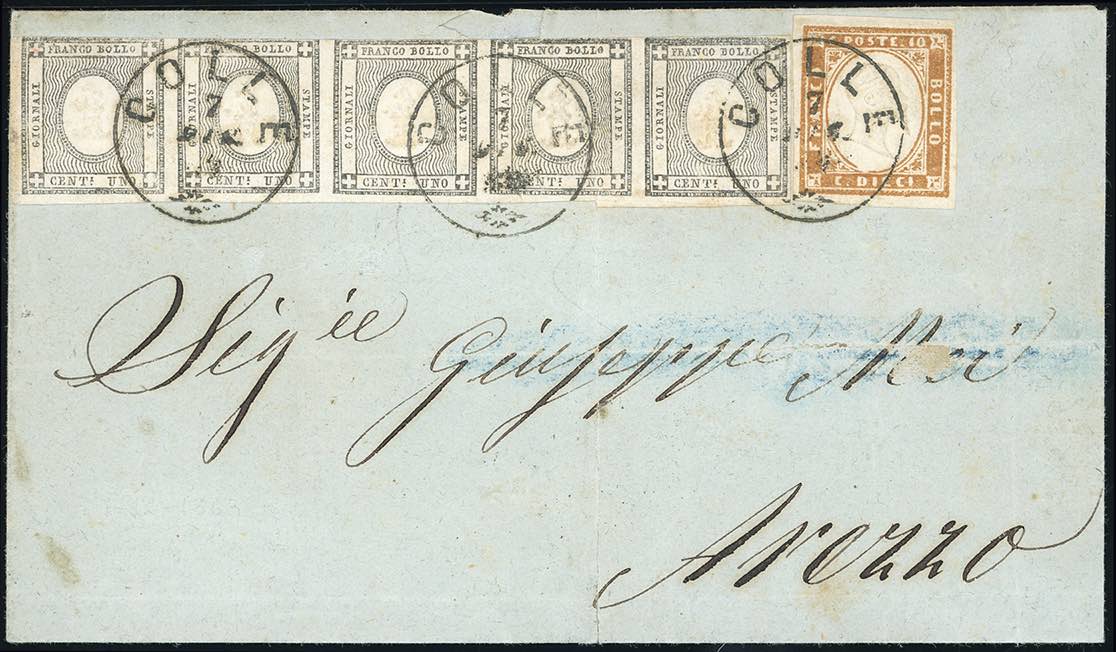 FRANCO BOLLO FRANCO BOLLO FRANCO BOLLO FRANCO BOLLO FRANCO BOLLO
GIORNALI STAMPE GIORNALI STAMPE GIORNALI STAMPE GIORNALI STAMPE GIORNALI STAMPE
CENT: UNO CENT: UNO CENT: UNO CENT: UNO CENT: UNO
POSTE. 10
FRANCO BOLLO
C. DIECI
COLLE
7
COLLE
COLLE
7
Sig.re Giuseppe
Arezzo